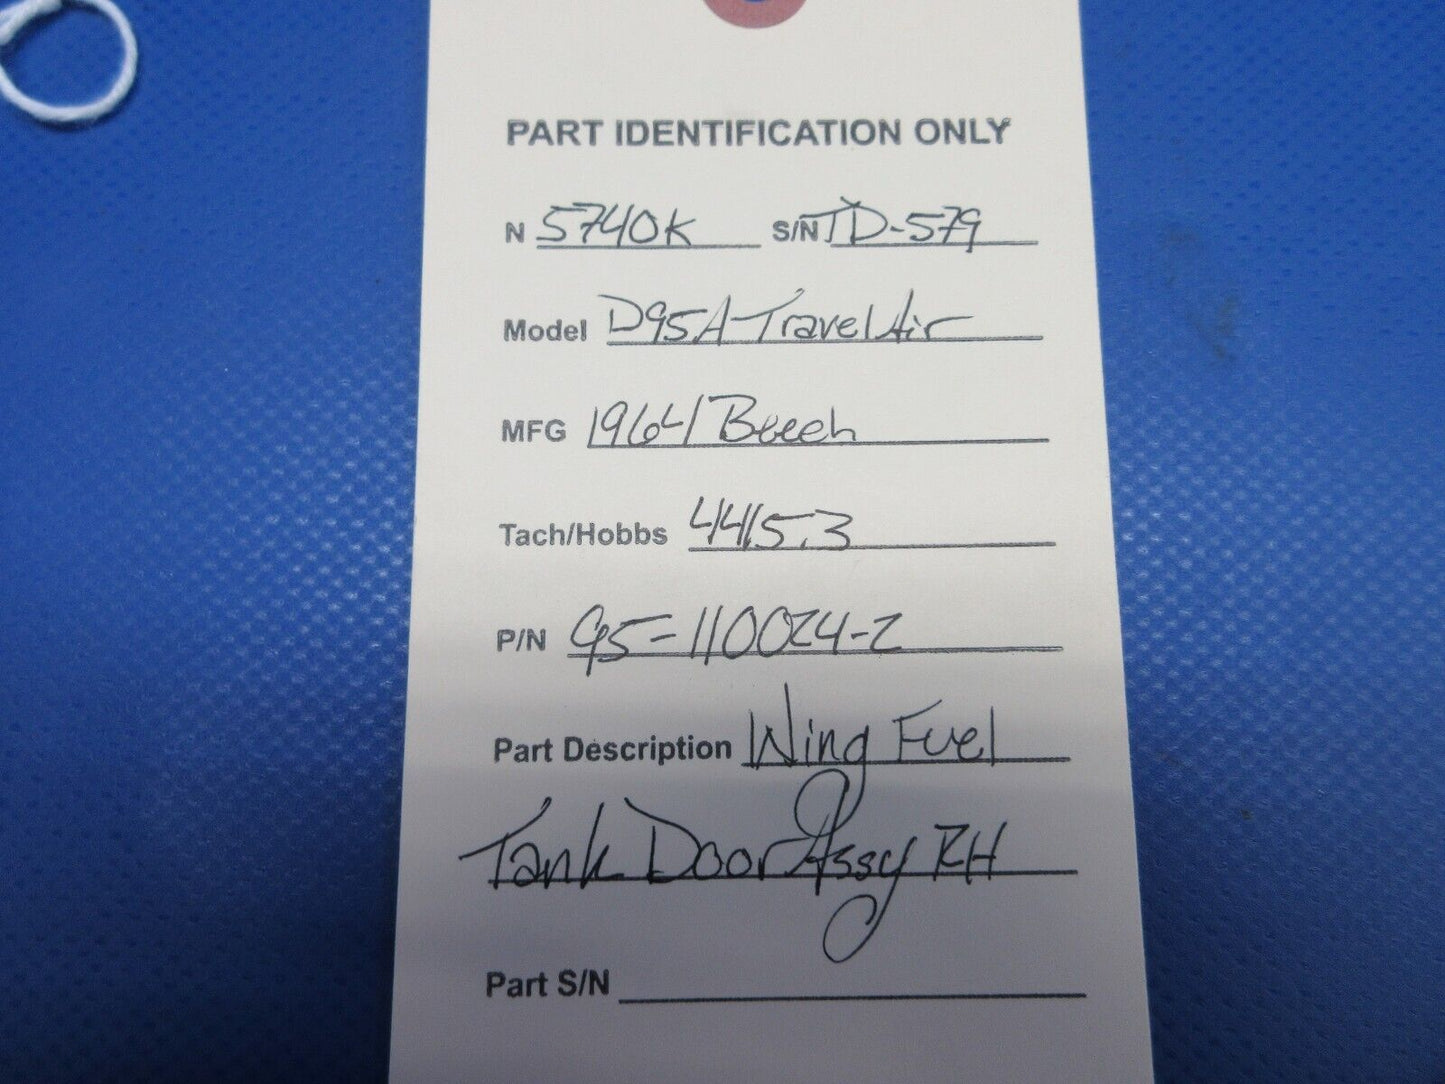 PART IDENTIFICATION ONLY
N 5740K S/N TD-579
Model D95A Travel Air
MFG 1964 Beech
Tach/Hobbs 4415.3
P/N 95-110024-2
Part Description Wing Fuel
Tank Door Assy RH
Part S/N